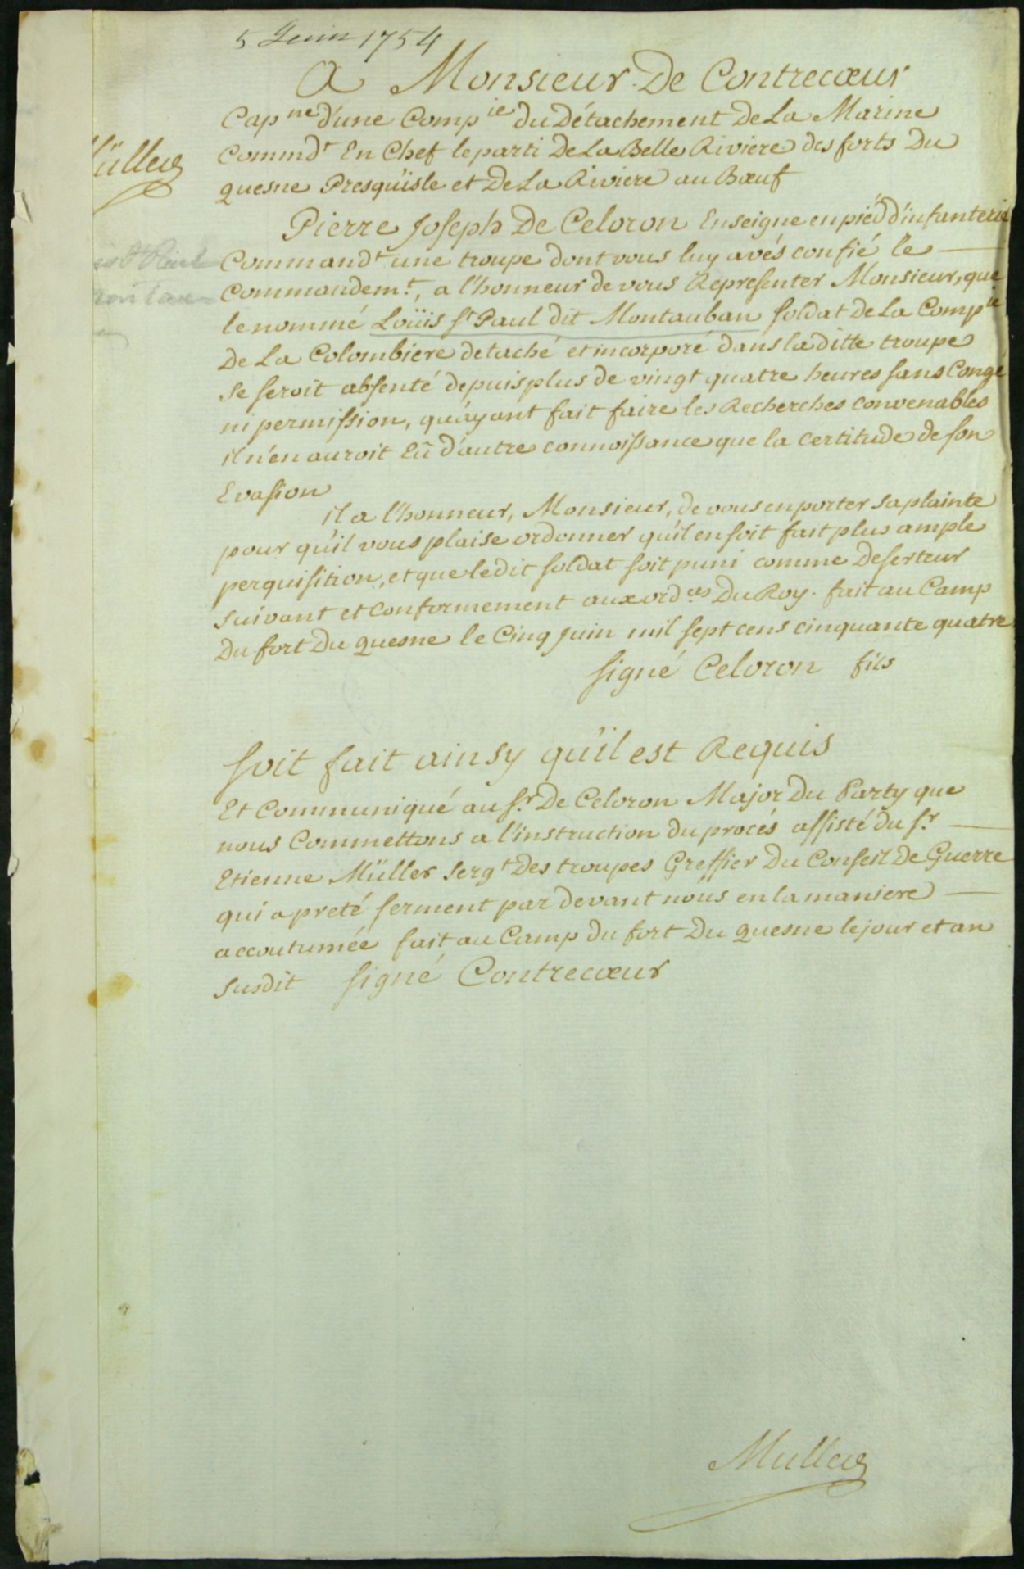 5 Juin 1754
A Monsieur De Contrecœur
Cap ne d'une Comp ie du Détachement De La Marine
Commd t En Chef le parti De La Belle Riviere des forts Du
quesne Presqu'isle et De La Riviere au Bœuf
Müller
Pierre Joseph De Celoron Enseigne en pied d'infanterie
Command t une troupe dont vous luy avés confié le
Commandem t, a l'honneur de vous Representer Monsieur, que
le nommé Loüis St Paul dit Montauban soldat de La Comp ie
De La Colombiere detaché et incorporé dans la ditte troupe
se seroit absenté depuis plus de vingt quatre heures sans Congé
ni permission, qu'ayant fait faire les Recherches convenables
il n'en auroit Eü d'autre connoissance que la certitude de son
Evasion
il a l'honneur, Monsieur, de vous en porter sa plainte
pour qu'il vous plaise ordonner qu'il en soit fait plus ample
perquisition, et que ledit soldat soit puni comme Deserteur
suivant et Conformement aux ord ces Du Roy. fait au Camp
Du fort Du quesne le Cinq Juin mil sept cens cinquante quatre
signé Celoron fils
soit fait ainsy qu'il est Requis
Et Communiqué au Sr De Celoron Major Du Party que
nous Commettons a l'instruction du procés assisté du Sr
Etienne Müller Serg t Des troupes Greffier Du Conseil De Guerre
qui a preté serment par devant nous en la maniere
accoutumée fait au Camp du fort Du quesne le jour et an
susdit signé Contrecœur
Muller